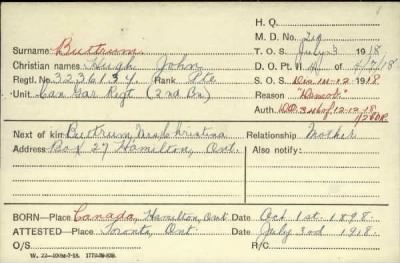 H. Q.
M. D. No. 2
Surname Buttrum T. O. S. July 3 1918
Christian names Hugh John D. O. Pt. II 4/7/18
Regtl. No. 3236134 Rank Pte S. O. S. Dec 12 1918
Unit Can Gar Regt (2nd Bn) Reason "Demob"
Auth. DO 346 of 12-12-18
Next of kin Buttrum, Mrs Christina Relationship Mother
Address Box 27 Hamilton, Ont. Also notify:
BORN—Place Canada, Hamilton, Ont Date Oct. 1st. 1898.
ATTESTED—Place Toronto, Ont. Date July 3rd 1918.
O/S R/C